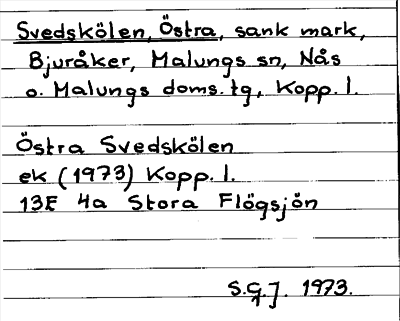 Svedskölen, Östra, sank mark,
Bjuråker, Malungs sn, Nås
o. Malungs doms. tg, Kopp. l.
Östra Svedskölen
ek (1973) Kopp. l.
13E 4a Stora Flögsjön
S.G.J. 1973.